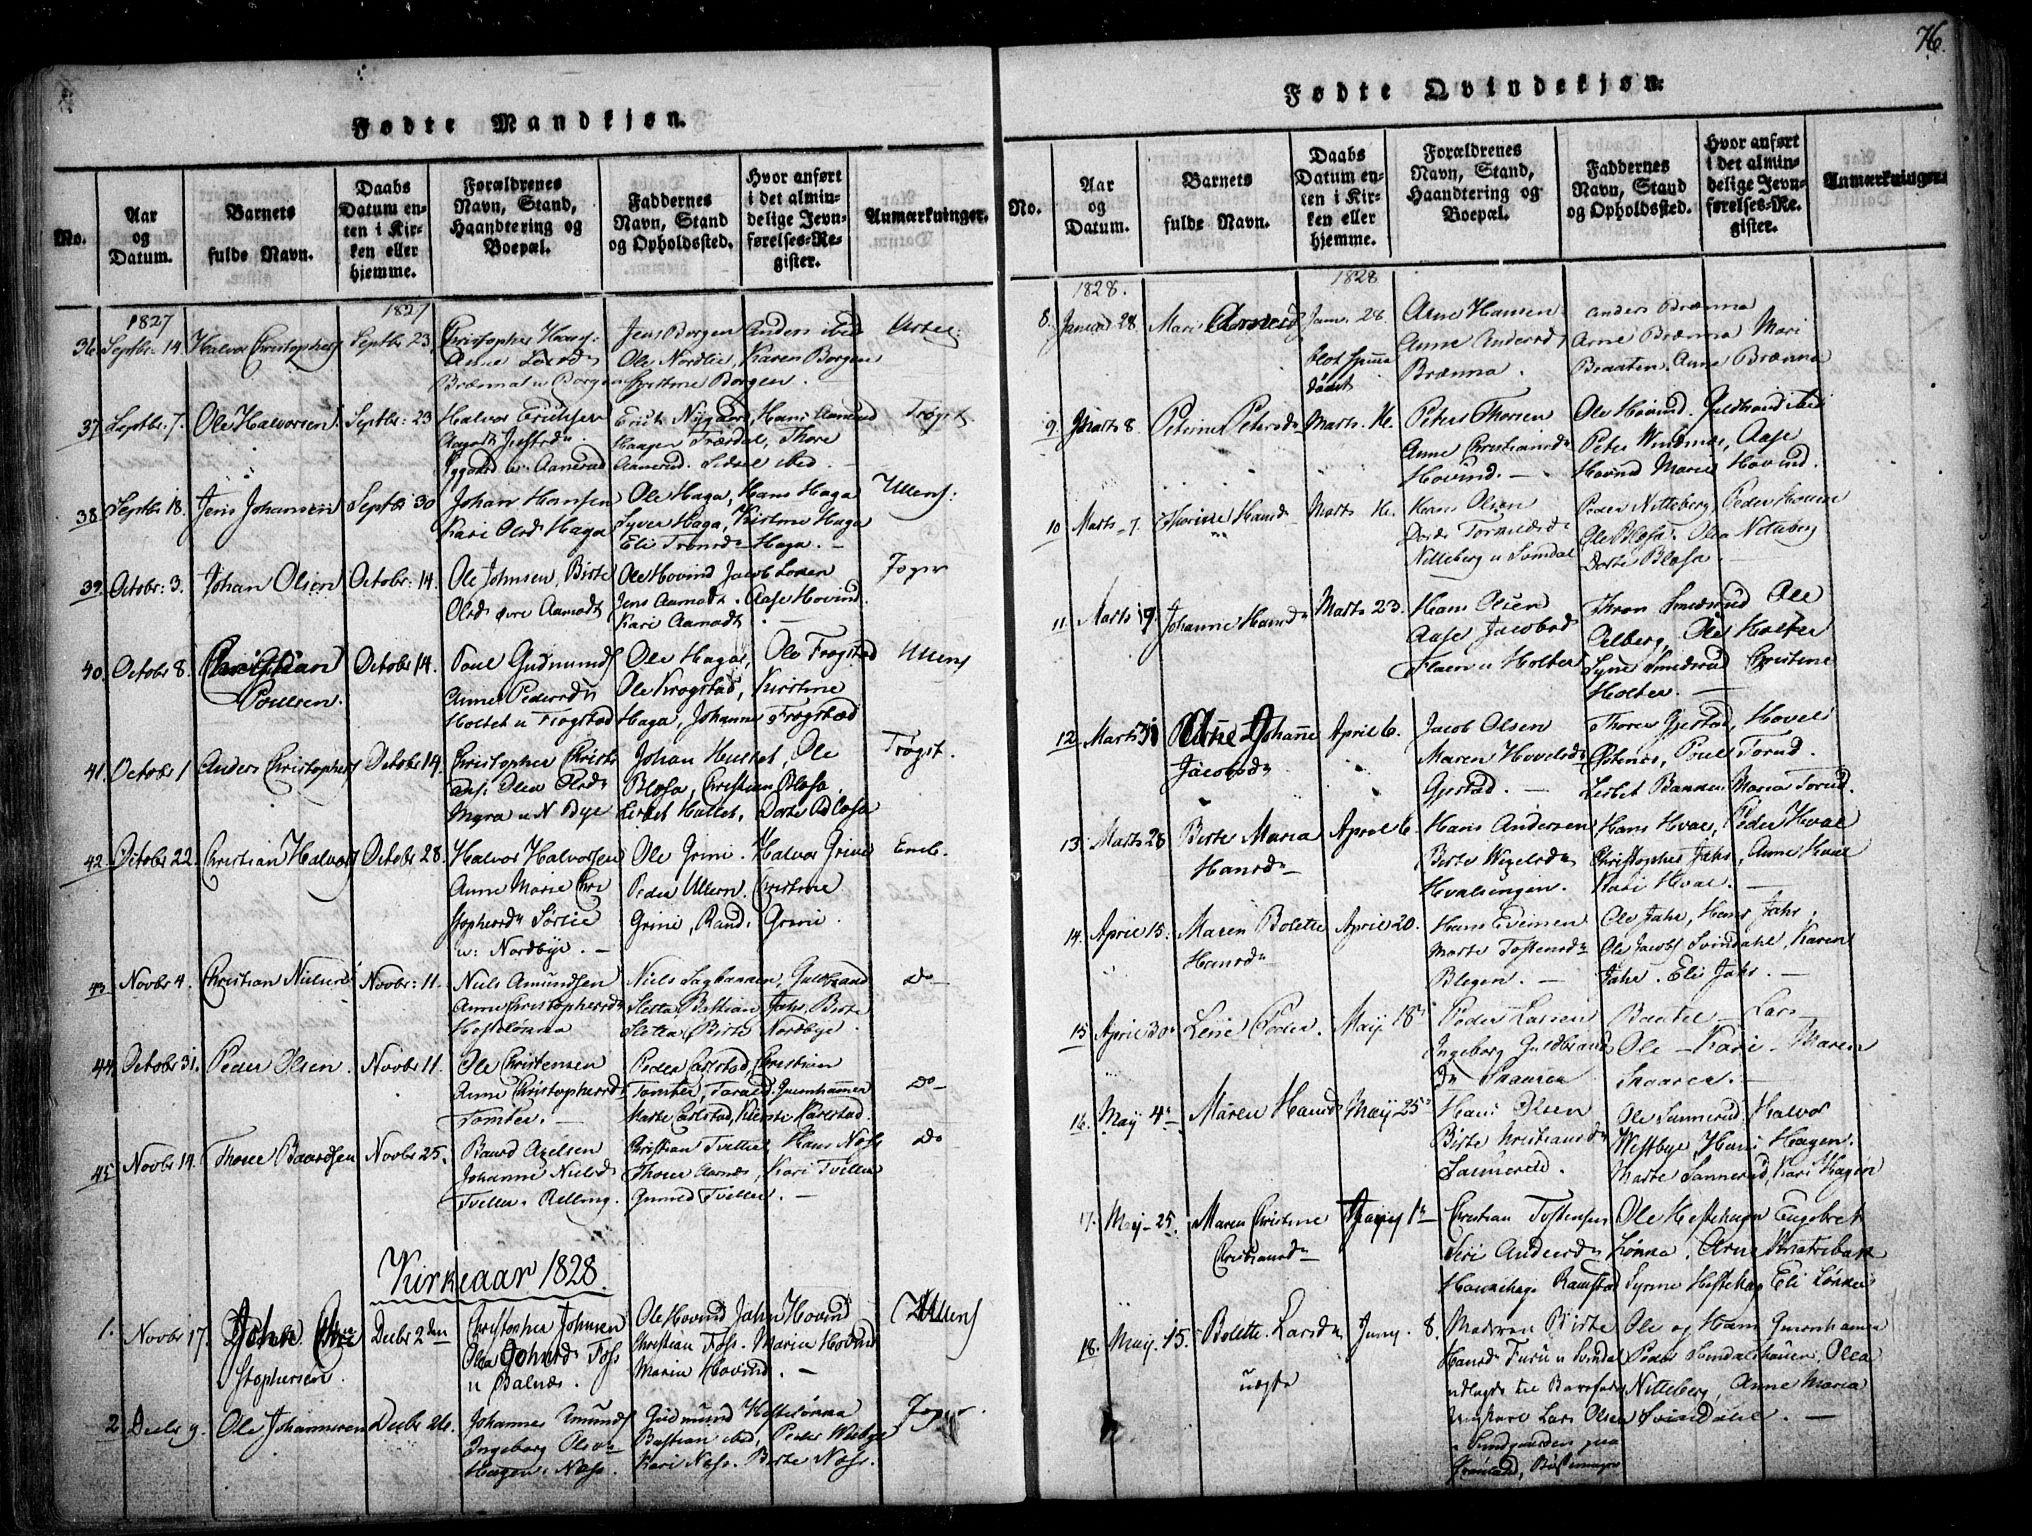 76.
Fødte Mandkjøn.
No.
Aar
og
Datum.
Barnets
fulde Navn.
Daabs
Datum en-
ten i Kir-
ken eller
hjemme.
Forældrenes
Navn, Stand,
Haandtering og
Boepæl.
Faddernes
Navn, Stand
og Opholdssted.
Hvor anført
i det almin-
delige Jevn-
førelses-Re-
gister.
Anmærkninger.
1827
1827
36. Septbr: 14. Halvor Christophers Septbr 23.
Christopher Hans:
Brænna u Borgen
Jens Borgen Anders ibid
Ole Nordlie, Karen Borgen
Christine Borgen.
37 Septbr: 7. Ole Halvorsen Septbr: 23
Halvor Erichsen
Nygaard u: Aamerud
Erich Nygaard, Hans Aamerud
Haagen Trærdal, Thore
Aamerud. Sidsel ibid.
Trøgst
38 Septbr 18. Jens Johansen Septbr 30
Johan Hansen
Kari Olsd Haga
Ole Haga, Hans Haga
Syver Haga, Kirstine Haga
Eli Tronsdr Haga.
Ullens:
39. Octobr: 3. Johan Olsen Octobr: 14.
Ole Johnsen, Birte
Olsdr øvre Aamodt
Ole Hovind Jacob Losen
Jens Aamodt. Aase Hovind.
Kari Aamodt
40. Octobr 8. Christian
Poulsen.
Octobr 14.
Poul Gudmunds
Anne Pedersdr
Holtet u Frogstad
Ole Haga, Ole Frogstad
Ole Krogstad, Kirstine
Haga, Johanne Frogstad
Ullens
41. Octobr 1 Anders Christophers Octobr 14.
Christopher Christo
Olea Olsdr
Myra u N Bye
Johan Hullet, Ole
Blæsa, Christian Blæsa.
Lisbet Hullet, Dorte Blæsa
Trøgst.
42. Octobr 22. Christian Halvors Octobr 28.
Halvor Halvorsen
Anne Marie Chri
stophersdr Sørlie
u: Nordbye.
Ole Grini. Halvor Grini
Peder Ullern. Christine
Grine, Rand. Grini.
Eneb.
43. Novbr 4. Christian Nielsen Novbr: 11.
Niels Amundsen
Anne Christophersdr
Hestelønna
Niels Sagbakken, Guldbrand
Sletta Bastian Jahr, Birte
Sletta, Birte Nordbye.
Do
44. Octobr 31. Peder Olsen. Novbr 11.
Ole Christensen
Anne Christophersdr
Tomter.
Peder Carlstad, Christian
Tomter, Torald Gunnhammer
Marte Carlstad, Kirsti Karlstad.
Do
45 Novbr 14. Thore Baardsen Novbr 25.
Baard Axelsen
Johanne Nielsdr
Tveller. Relling.
Christian Tvetter, Hans Næss
Thorer Aarnæs, Kari Tveller
Gunild Tveller.
Do
Kirkeaar 1828.
1. Novbr 17. John Chri
stophersen.
Decbr 2den
Christopher Johnsen
Olea Johnsdr Foss
u Balnæs.
Ole Hovind Jahn Hovind
Christian Foss. Marie Hovind
Marin Hovind.
Ullens
2. Decbr 9. Ole Johannesen Decbr 26.
Johannes Amunds
Ingeborg Olsdr
Hagen. Næss.
Gudmund Hestelønna
Bastian ibid, Peder Webye
Kari Næss. Birte Næss.
Fødte Qvindekjøn.
No.
Aar
og
Datum.
Barnets
fulde Navn.
Daabs
Datum en-
ten i Kir-
ken eller
hjemme.
Forældrenes
Navn, Stand,
Haandtering og
Boepæl.
Faddernes
Navn, Stand
og Opholdssted.
Hvor anført
i det almin-
delige Jevn-
førelses-Re-
gister.
Anmærkninger.
1828.
1828
8. Januar 28. Mari Arnesd Janu. 28
Arne Hansen
Anne Andersd
Brænna.
Anders Brænna
Arne Brænna Mari
Braaten. Anne Brænna
9 Marts 8. Peterine Petersdr Marts. 16.
Peter Thorsen
Anne Christiansdr
Hovind.
Ole Hovind. Guldbrand ibid
Peter Windnæs, Aase
Hovind Marie Hovind.
10 Marts 7. Thorine Hansdr Marts 16.
Hans Olsen
Nitteberg u Svindal
Peder Nitteberg, Peder Houen
Ole Blæsa. Olea Nitteberg
Dorte Blæsa.
11 Marts 19. Johanne Hansdr Marts 23.
Hans Olsen
Aase Jacobsd
Flaen u Holter
Thron Smedsrud Ole
Ole Holter
Syne Smedsrud Christine
Holter.
12. Marts 31 Anne Johanne
Jacobsdr
April 6.
Jacob Olsen
Maren Hovelsdr
Gjestad.
Thorer Gjestad, Hovel
Østenes, Poul Torud.
Lisbet Banken Maria Torud.
13. Marts 28 Birte Maria
Hansdr
April 6.
Hans Andersen
Birte Wigelsdr
Hvalsengen.
Hans Hval, Peder Hval
Christopher Jahr, Anne Hval
Kari Hval.
14. April 15. Maren Bolette
Hansdr
April 20.
Hans Evensen
Marte Tostensdr
Blegen.
Ole Jahr, Hans Jahr,
Ole Jacobs Svindahl, Karen
Jahr. Eli Jahr.
15 April 30 Lene Peder. May 18
Peder Larsen
Ingeborg Guldbrand
Dr Skaarer
Baattel Lars
Ole Kari Maren
Skaarer.
16. May 4 Maren Hansdr May 25
Hans Olsen
Birte Christiansdr
Sannerud.
Ole Sannerud. Halvor
Westbye Hans Hagen.
Marte Sannerud, Kari Hagen
17. May 25. Maren Christine
Christiansdr
Juny 1
Christian Tostensen
Siri Andersdr
Hannehage Ramstad
Ole Hestehagen Engebret
Lønna. Arne Knatribak
Syrine Hestehag Eli Lønner
18. May. 15. Bolette. Larsdr
uægte
Juny. 8.
Madamen Birte
Hansd Furu u Svindal
udlagde til Barnefader
Ungkarl Lars Olsen
Ole og Hans Gunnhamer
Peder Svindalshauen, Olea
Nitteberg, Anne Maria
Svindahl.